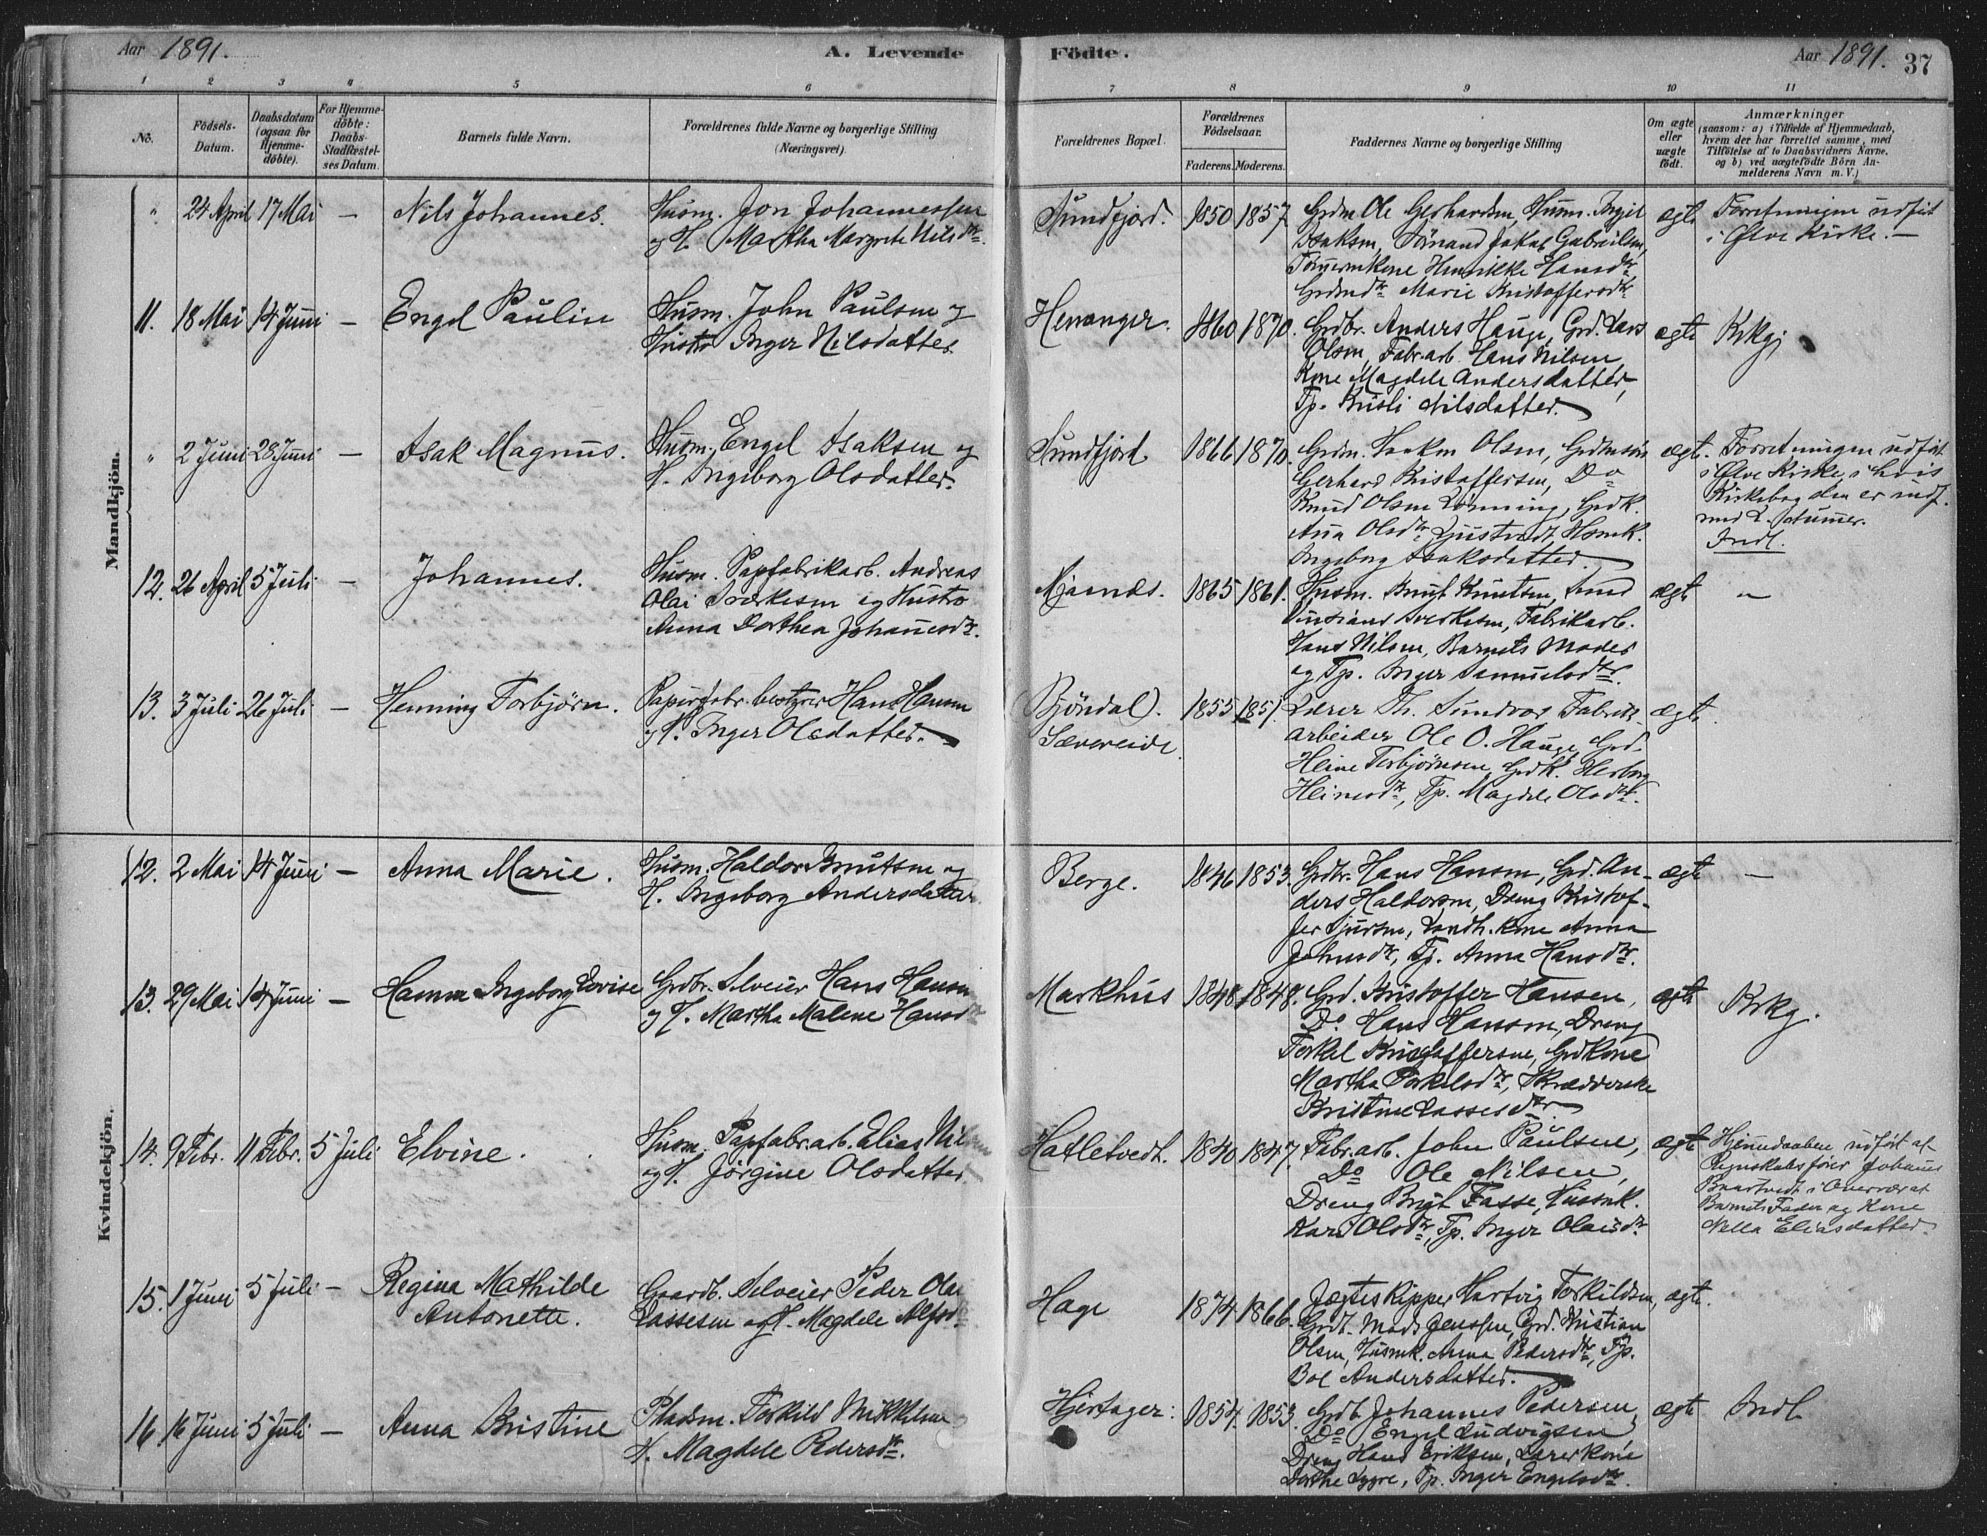 Aar 1891.
A. Levende Födte.
Aar 1891. 37
1 2 3 4 5 6 7 8 9 10 11
No.
Födsels-
Datum.
Daabsdatum
(ogsaa for
Hjemme-
döbte).
For Hjemme-
döbte:
Daabs-
Stadfæstel-
ses Datum.
Barnets fulde Navn.
Forældrenes fulde Navne og borgerlige Stilling
(Næringsvei).
Forældrenes Bopæl.
Forældrenes
Födselsaar.
Faderens. Moderens.
Faddernes Navne og borgerlige Stilling
Om ægte
eller
uægte
födt.
Anmærkninger
(saasom: a) i Tilfælde af Hjemmedaab,
hvem der har forrettet samme, med
Tilföielse af to Daabsvidners Navne,
og b) ved uægtefödte Börn An-
melderens Navn m. V.)
Mandkjön.
" 24 April 17 Mai — Nils Johannes.
Husm. Jon Johannessen
og H. Martha Margrete Nilsdtr.
Sundfjord. 1850 1857
Grdm Ole Gerhardsen, Husm. Brynil
Isaksen, Jakob Gabrielsen,
Henrikke Hansdtr,
Marie Kristoffersdtr
ægte
Forretningen udført
i Ølve Kirke. —
11. 18 Mai 14 Juni — Engel Paulin
Husm. John Paulsen og
Hustro Inger Nilsdatter
Henanger. 1860 1870.
Grdbr. Anders Hauge, Grd. Lars
Olsen, Fabr.arb. Hans Nilsen,
Kone Magdele Andersdatter,
Tp. Kristi Nilsdatter.
ægte Krkg
" 2 Juni 28 Juni — Isak Magnus.
Husm. Engel Isaksen og
H. Ingeborg Olsdatter.
Sundfjord 1866 1870
Grdm. Haakon Olsen, Grdmsøn
Gerhard Kristoffersen, Do
Knud Olsen Lønning, Grdk.
Ana Olsdtr Ljustvedt, Hsmk.
Ingeborg Isaksdatter.
ægte.
Forretningen udført
i Ølve Kirke, i hvis
Kirkebog den er indf.
med L. Numer.
Indl.
12. 26 April 5 Juli — Johannes.
Husm. Papfabrikarb. Andreas
Olai Sverkesen og Hustro
Anna Dorthea Johannesdtr.
1865 1861.
Husm. Knut Knutsen,
Sverkesen, Fabrikarb.
Hans Nilsen, Barnets Moder
og Tp. Inger Samuelsdtr.
ægte —
13. 3 Juli 26 Juli — Henning Torbjørn.
Papirfabr. bestyrer Hans Hansen
og H. Inger Olsdatter.
(Bjöndal).
Sævereide.
1855 1857.
Lærer Th. Sundvor, Fabrik-
arbeider Ole O. Hauge, Grd.
Heine Torbjørnsen, Grdk. Herborg
Heinesdtr, Tp. Magdele Olsdtr.
ægte.
Kvindekjön.
12. 2 Mai 14 Juni — Anna Marie.
Husm. Haldor Knutsen og
H. Ingeborg Andersdatter
Berge. 1846 1853.
Grdbr. Hans Hansen, Grd. An-
ders Haldorsen, Dreng Kristof-
fer Sjursen, Landh. Kone Anna
Johnsdtr, Tp. Anna Hansdtr.
ægte —
13. 29 Mai 14 Juni — Hanna Ingeborg Lovise
Grdbr. Selveier Hans Hansen
og H. Martha Malene Hansdtr
Markhus 1848. 1848.
Grd. Kristoffer Hansen,
Do Hans Hansen, Dreng
Torkel Kristoffersen, Grdkone
Martha Torkelsdtr, Skrædderske
Kristine Lassesdtr.
ægte Krkg.
14. 9 Febr. 11 Febr. 5 Juli Elvine.
Husm. Papfabr.arb. Elias Nilsen
og H. Jörgine Olsdatter
Hatletvedt. 1840 1847.
Fabr.arb. John Paulsen,
Do Ole Nilsen,
Dreng Brigt Tasse, Husmk.
Kari Olsdtr, Tp. Inger Olaisdtr
ægte
Hjemmedaaben udført af
Regnskabsfører Johannes
i Overvær af
Barnets Fader og Kone
Nella Eliasdatter.
15. 1 Juni 5 Juli — Regina Mathilde
Antonette.
Gaardb. Selveier Peder Olai
Lassesen og H. Magdele Alfsdtr
Hage 1874 1866.
Jægteskipper Hartvig Torkildsen,
Grdb. Mads Jenssen, Grd. Kristian
Olsen, Husmk. Anna Pedersdtr, Tp.
Boe Andersdatter.
ægte.
16 16 Juni 5 Juli — Anna Kristine
Pladsm. Torkild Mikkelsen
H. Magdele Pedersdtr.
Hjertager. 1854. 1853.
Grdb. Johannes Pedersen,
Do Engel Ludvigsen
Dreng Hans Eriksen, Lærerkone
Dorthe Lygre, Tp. Inger Engelsdtr.
ægte Indl.